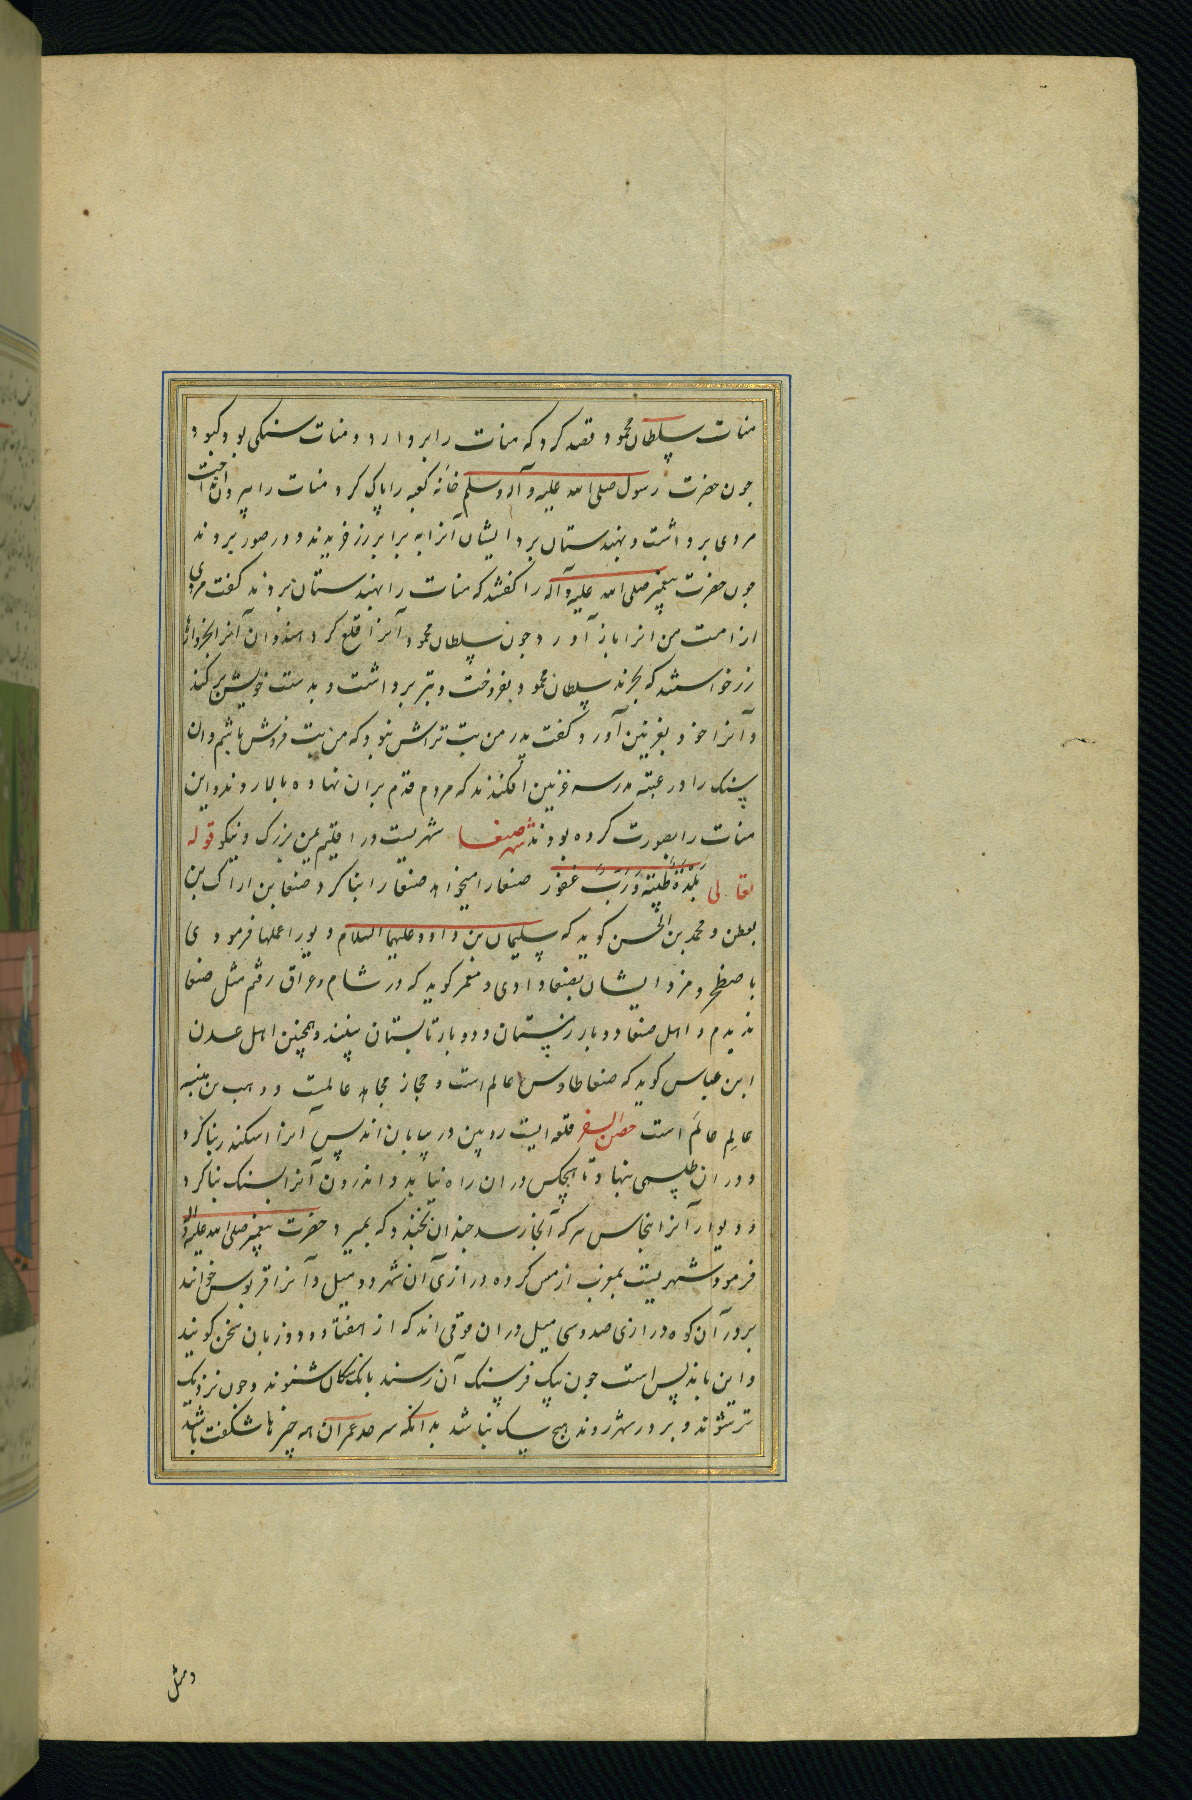 منات سلطان محمود قصد کرد که منات را بردارد و منات سنکی بود کبود
جون حضرت رسول صلی الله علیه و آله وسلم خانه کعبه را پاک کرد منات را بیرون انداخت
مردی برداشت و بهندستان برد ایشان آنرا به برابر زر خریدند و در صور بردند
جون حضرت پیغمبر صلی الله علیه و آله را کفتند که منات را بهندستان بردند کفت مردی
از امت من انرا باز آورد جون سلطان محمود آنرا قلع کرد هندوان آنرا
زر خواستند که بخرند سلطان محمود بفروخت و تبر برداشت و بدست خویش برکند
و آنرا خرد بغزنین آورد و کفت پدر من بت تراش نبود که من بت فروش باشم و ان
سنک را در عتبه مدرسه غزنین افکندند که مردم قدم بران نهاده بالا روند و این
منات را بصورت کرده بودند شهر صنعا شهریست در اقلیم یمن بزرک و نیکو قوله
تعالی بَلْدَةٌ طَیِّبَةٌ وَرَبٌّ غفور صنعا را میخواهد صنعا را بنا کرد صنعا بن اراک بن
یعطن و محمد بن الحسن کوید که سلیمان بن داود علیهما السلام دیو را عملها فرمودی
باصطخر و مزد ایشان بصنعا دادی و معمر کوید که در شام و عراق رفتم مثل صنعا
ندیدم و اهل صنعا دو بار زمستان و دو بار تابستان بینند و همچنین اهل عدن
ابن عباس کوید که صنعا طاوس عالم است و حجاز مجاهد عالمست و وهب بن منبه
عالِم عالَم است حصن الصفر قلعه ایست رویین در بیابان اندلس آنرا اسکندر بنا کرد
و در ان طلسمی بنهاد تا هیچکس در ان راه نیابد و اندرون آنرا بسنک بنا کرد
و دیوار آنرا بنحاس هر که آنجا رسد جندان بخندد که بمیرد حضرت پیغمبر صلی الله علیه و آله
فرمود شهریست بمغرب از مس کرده درازی آن شهر دو میل و آنرا خوانند
بر در آن کوه درازی صد و سی میل در ان قومی اند که از هفتاد و دو زبان سخن کویند
و این باندلس است جون بیک فرسنک آن رسند بانک سکان شنوند و جون نزدیک
تر شوند و بر در شهر روند هیچ سک نباشد بدانکه سرحد عمران همه چیزها شکفت باشد
و مثل